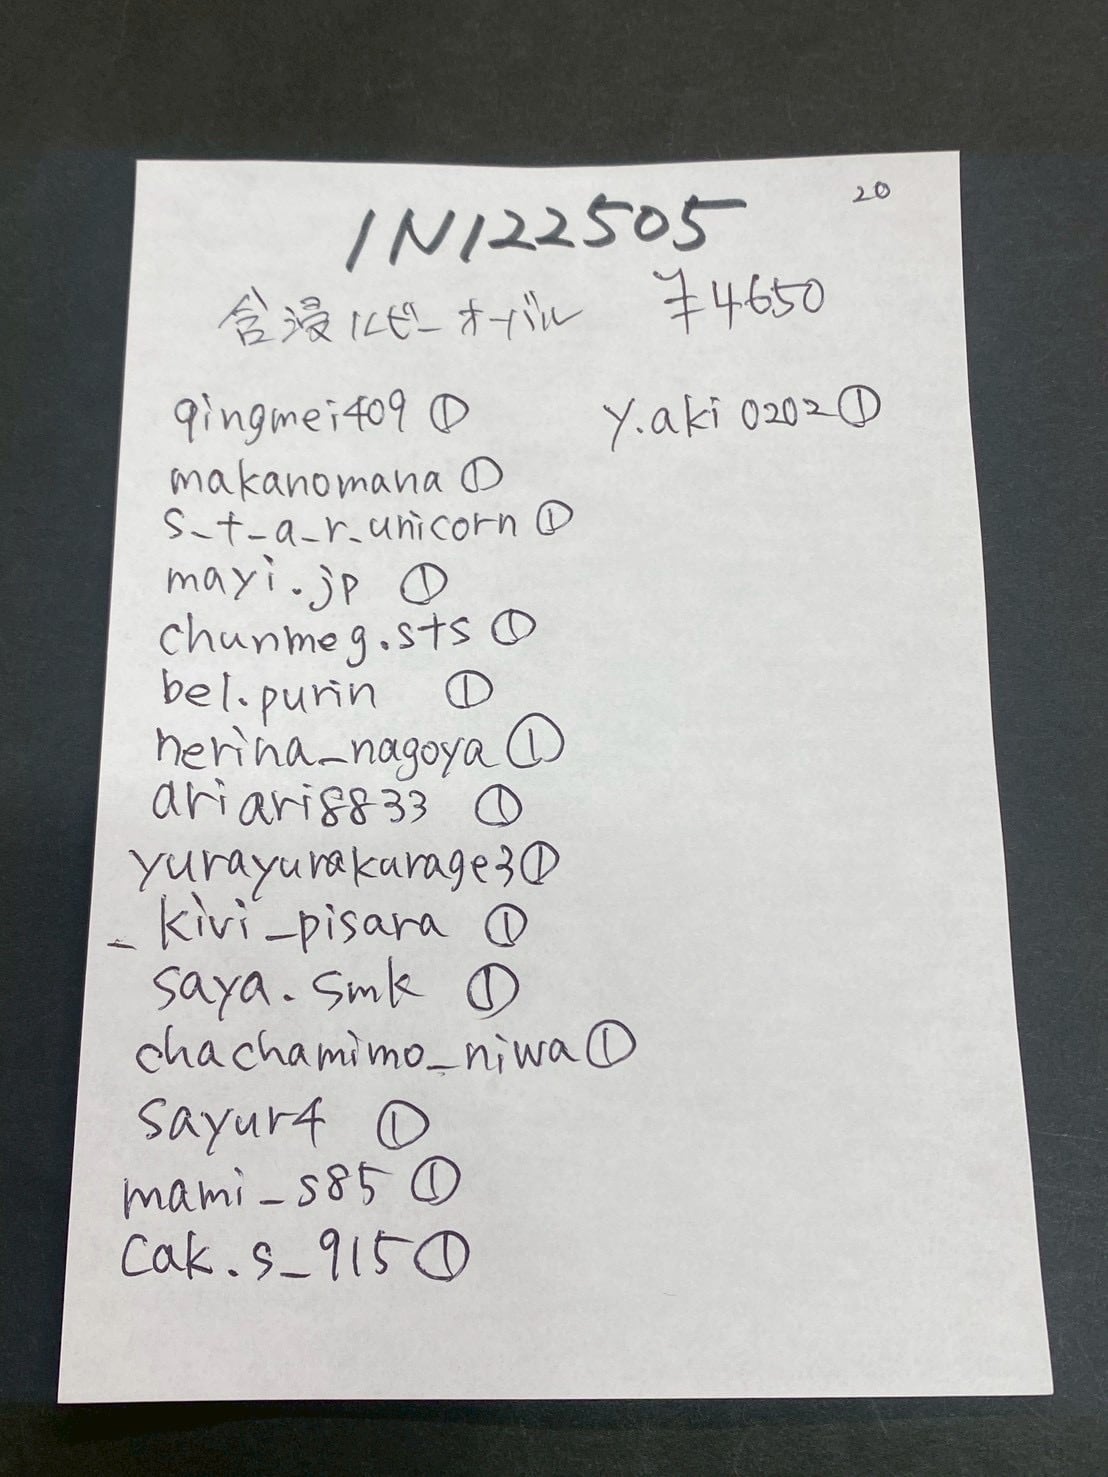 20
IN122505
含浸ルビー オーバル ¥4650
qingmei409 ①
makanomana ①
s_t_a_r_unicorn ①
mayi.jp ①
chunmeg.sts ①
bel.purin ①
nerina_nagoya ①
ariari8833 ①
yurayurakurage3 ①
_kivi_pisara ①
saya.smk ①
chachamimo_niwa ①
sayur4 ①
mami_s85 ①
cak.s_915 ①
y.aki0202 ①